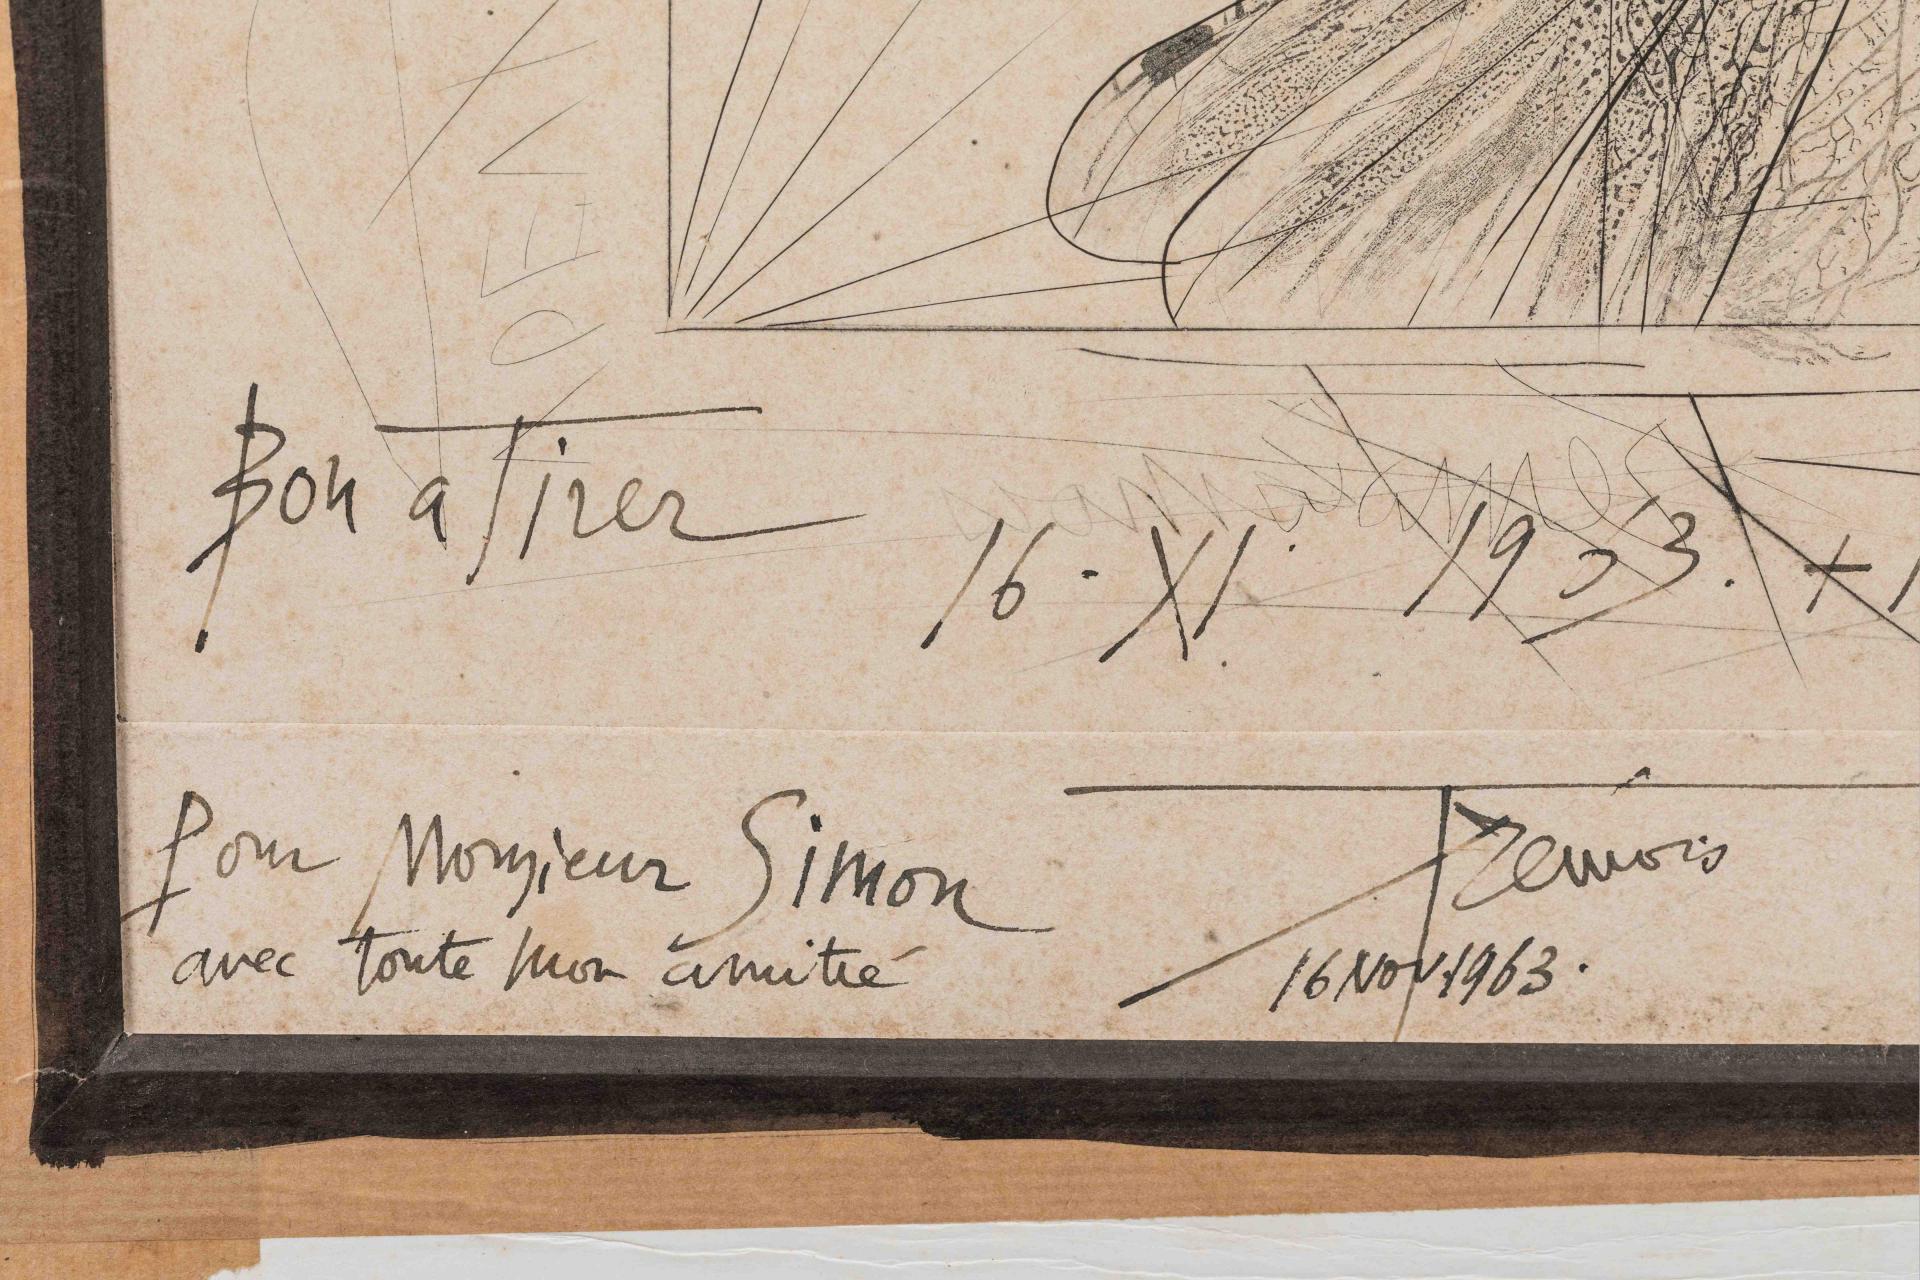 Bon a Tirer
16 · XI. 1963. +
Pour Monsieur Simon
avec toute mon amitié
Trémois
16 Nov. 1963.